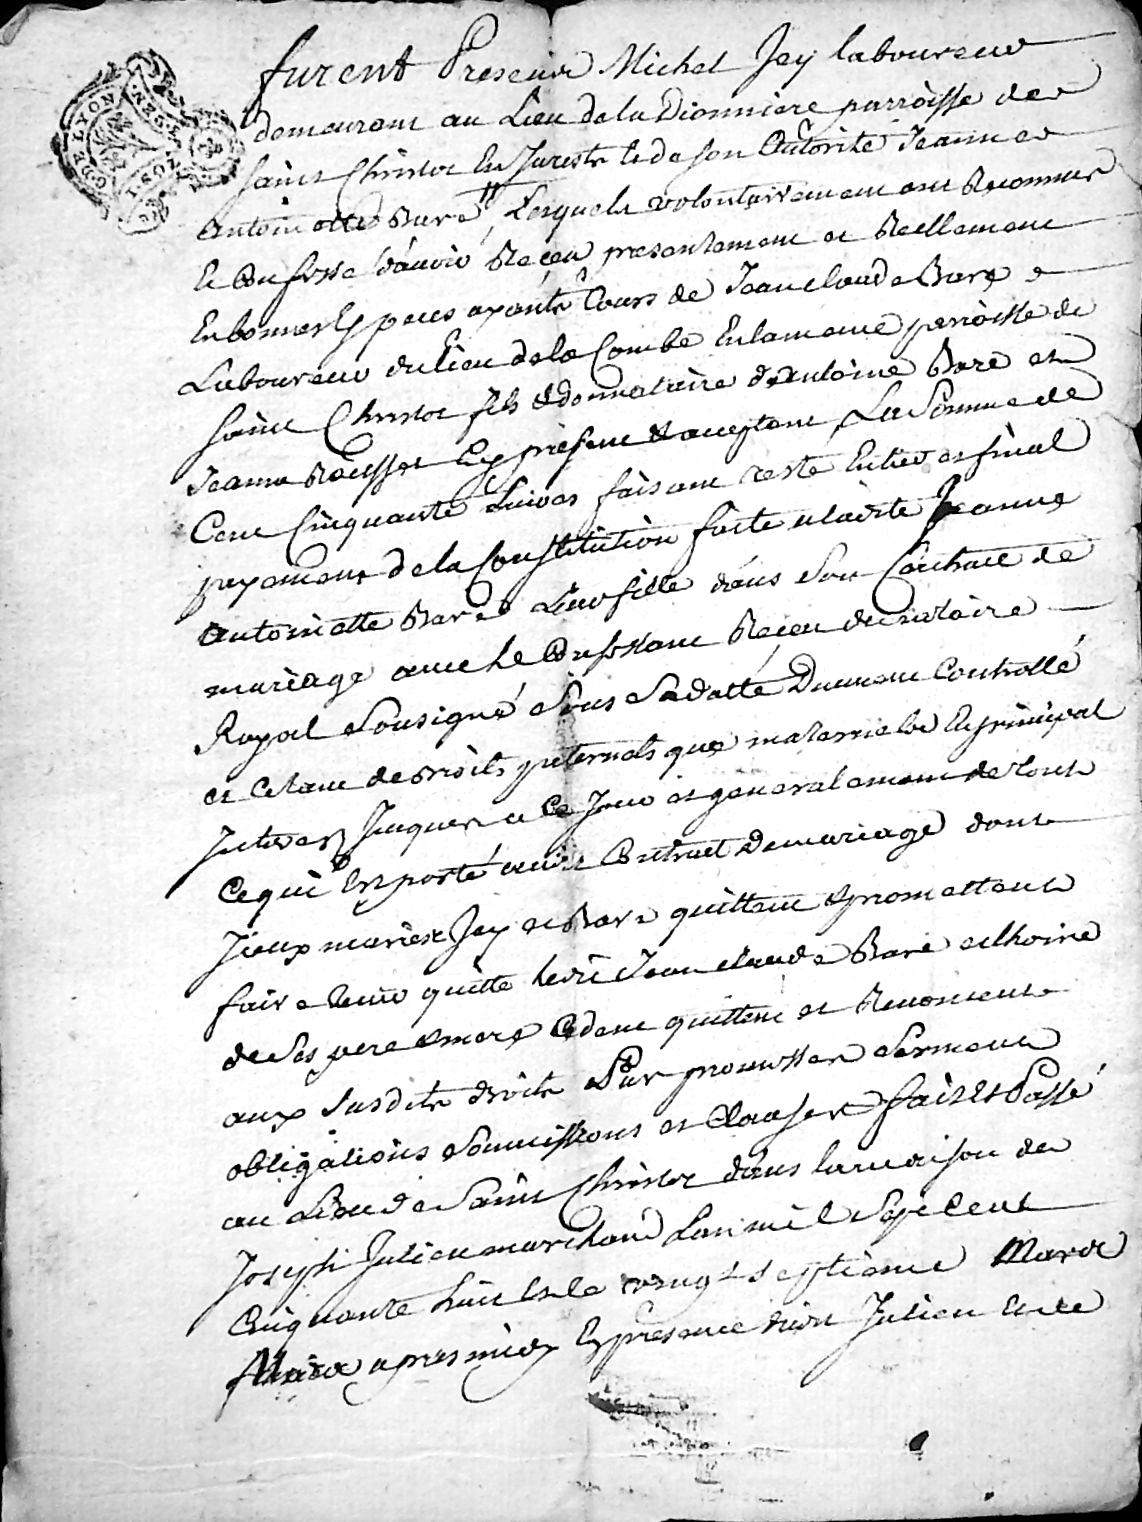 G DE LYON
furent Presents Michel Jey laboureur
demeurant au Lieu de la Dionniere parroisse de
saint Christot En Jurests & de son Autorité Jeanne
Antoinette Baré Lesquels volontairement ont Reconnus
& Confesse d'avoir Reçeu presentement et Reellement
En bonnes Especes ayants Cours de Jean claude Bare
Laboureur du lieu de la Combe En la meme parroisse de
saint Christot fils & donnataire d'Antoine Bare et
Jeanne Rousset Ey present & acceptant La Somme de
Cent Cinquante Livres faisant reste Entier et final
payement de la Constitution faite a ladite Jeanne
Antoinette Bare Leur fille dans Son Contract de
mariage avec le Confessant Reçeu du notaire
Royal Sousigné Sous Sa datte Duement Controllé
et Ce tant de droits paternels que maternels En principal
Jnterets Jusques a Ce Jour et generalement de tout
Ce qui Est porté audit Contract De mariage dont
Jceux mariés Jey et Bare quittent & promettent
faire tenir quitte ledit Jean claude Baré et hoirs
de Ses pere & mere Cedent quittent et Renoncent
aux Susdits droits Par promesses Serment
obligations Soumissions et Clauses fait et Passé
au Lieu de Saint Christot dans la maison de
Joseph Julien marchand L'an mil Sept Cent
Cinquante huit Et le vingt septieme Mars
apres midy En presence dudit Julien Et de